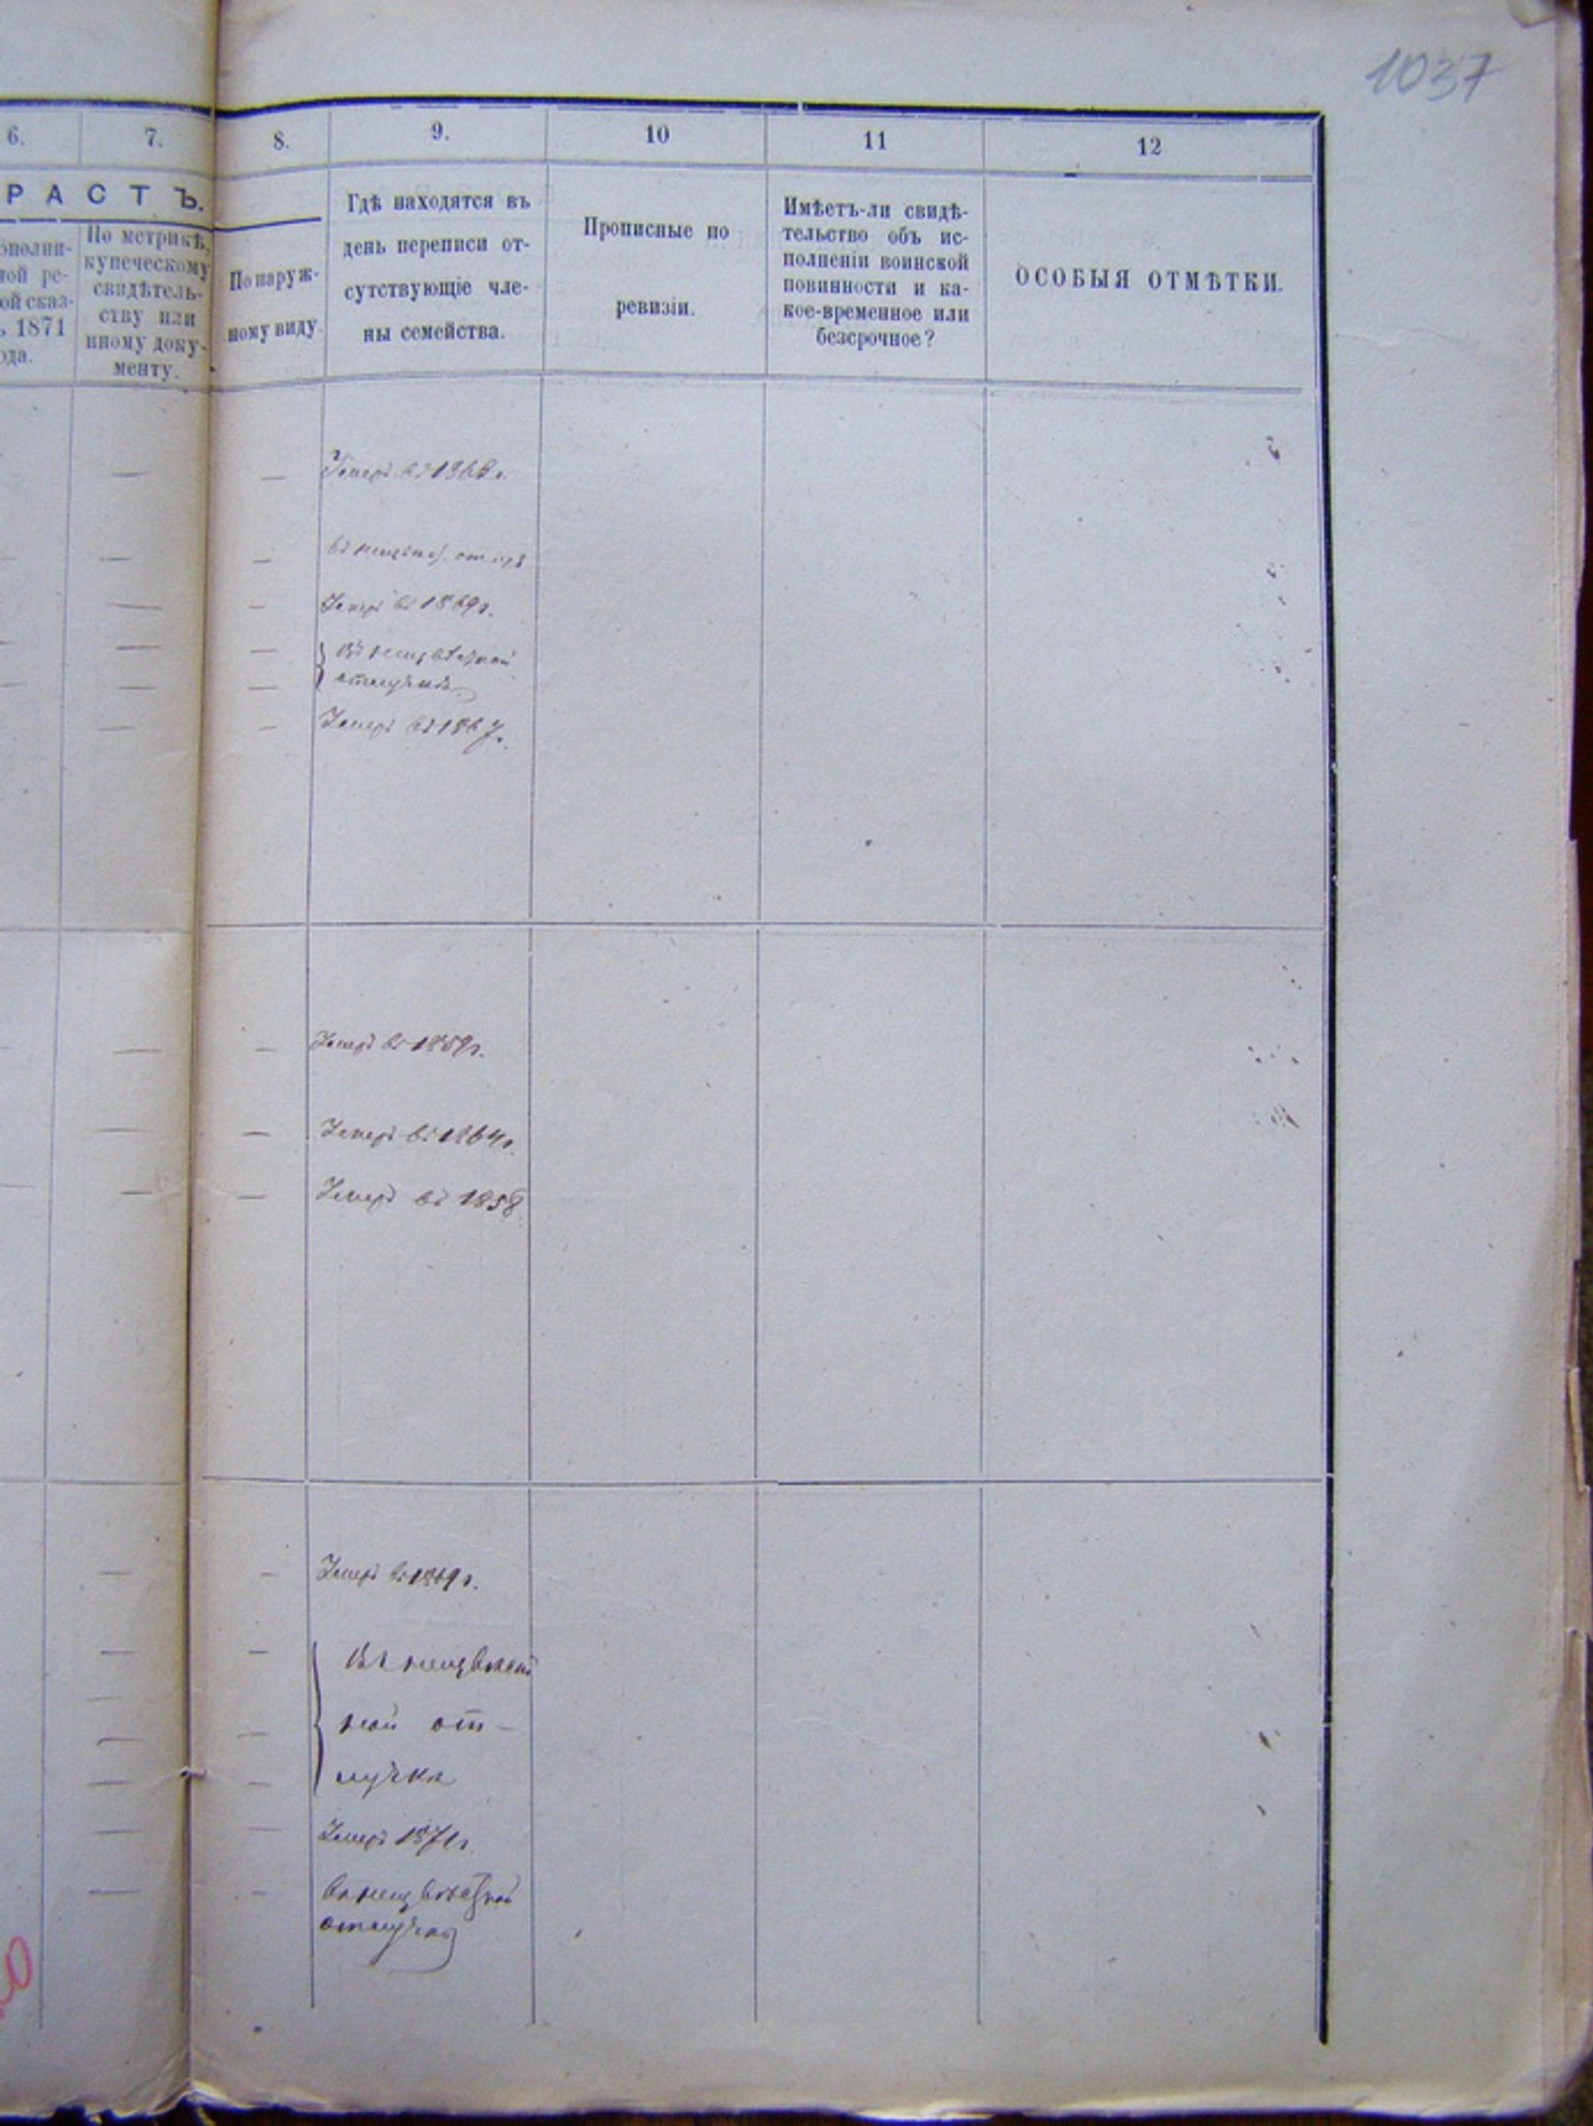 1037
6. 7. 8. 9. 10 11 12
РАСТЪ.
ополни-
ной ре-
ой сказ-
ѣ 1871
ода.
По метрикѣ,
купеческому
свидѣтель-
ству или
иному доку-
менту.
По наруж-
ному виду.
Гдѣ находятся въ
день переписи от-
сутствующіе чле-
ны семейства.
Прописные по
ревизіи.
Имѣетъ-ли свидѣ-
тельство объ ис-
полненіи воинской
повинности и ка-
кое-временное или
безсрочное?
ОСОБЫЯ ОТМѢТКИ.
Умеръ въ 1868 г.
въ неизвѣст.
Умеръ въ 1869 г.
въ неизвѣстной
отлучкѣ
Умеръ въ 1867 г.
Умеръ въ 1859 г.
Умеръ въ 1864 г.
Умеръ въ 1858
Умеръ въ 1869 г.
Въ неизвѣст
ной от-
лучкѣ
Умеръ 1871 г.
въ неизвѣстной
отлучкѣ